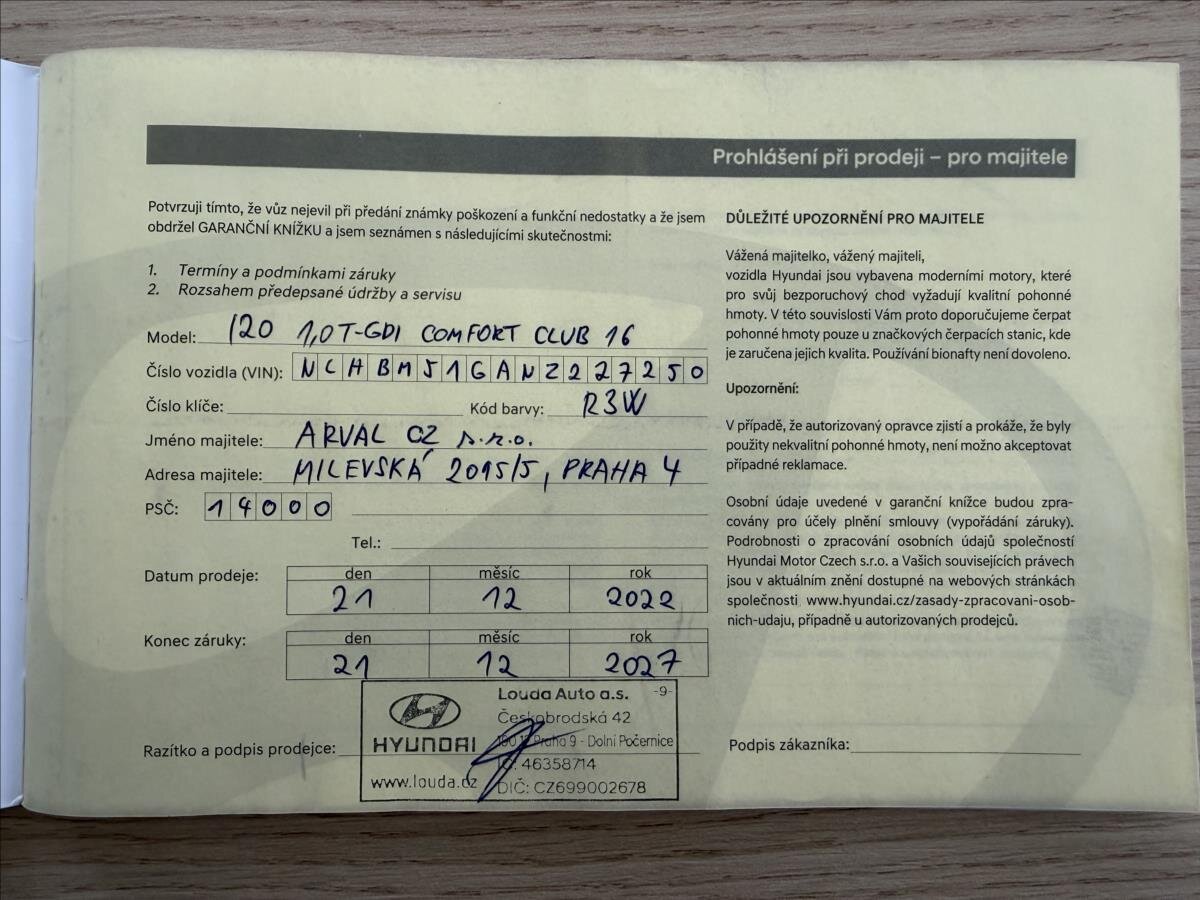 Prohlášení při prodeji – pro majitele
Potvrzuji tímto, že vůz nejevil při předání známky poškození a funkční nedostatky a že jsem
obdržel GARANČNÍ KNÍŽKU a jsem seznámen s následujícími skutečnostmi:
1. Termíny a podmínkami záruky
2. Rozsahem předepsané údržby a servisu
Model: i20 1,0 T-GDI COMFORT CLUB 16
Číslo vozidla (VIN): NLHBM51GANZ227250
Číslo klíče: Kód barvy: R3W
Jméno majitele: ARVAL CZ s.r.o.
Adresa majitele: MILEVSKÁ 2095/5, PRAHA 4
PSČ: 14000
Tel.:
Datum prodeje: den měsíc rok
21 12 2022
Konec záruky: den měsíc rok
21 12 2027
Razítko a podpis prodejce:
HYUNDAI
www.louda.cz
Louda Auto a.s. -9-
Českobrodská 42
Praha 9 - Dolní Počernice
46358714
DIČ: CZ699002678
DŮLEŽITÉ UPOZORNĚNÍ PRO MAJITELE
Vážená majitelko, vážený majiteli,
vozidla Hyundai jsou vybavena moderními motory, které
pro svůj bezporuchový chod vyžadují kvalitní pohonné
hmoty. V této souvislosti Vám proto doporučujeme čerpat
pohonné hmoty pouze u značkových čerpacích stanic, kde
je zaručena jejich kvalita. Používání bionafty není dovoleno.
Upozornění:
V případě, že autorizovaný opravce zjistí a prokáže, že byly
použity nekvalitní pohonné hmoty, není možno akceptovat
případné reklamace.
Osobní údaje uvedené v garanční knížce budou zpra-
covány pro účely plnění smlouvy (vypořádání záruky).
Podrobnosti o zpracování osobních údajů společností
Hyundai Motor Czech s.r.o. a Vašich souvisejících právech
jsou v aktuálním znění dostupné na webových stránkách
společnosti www.hyundai.cz/zasady-zpracovani-osob-
nich-udaju, případně u autorizovaných prodejců.
Podpis zákazníka: